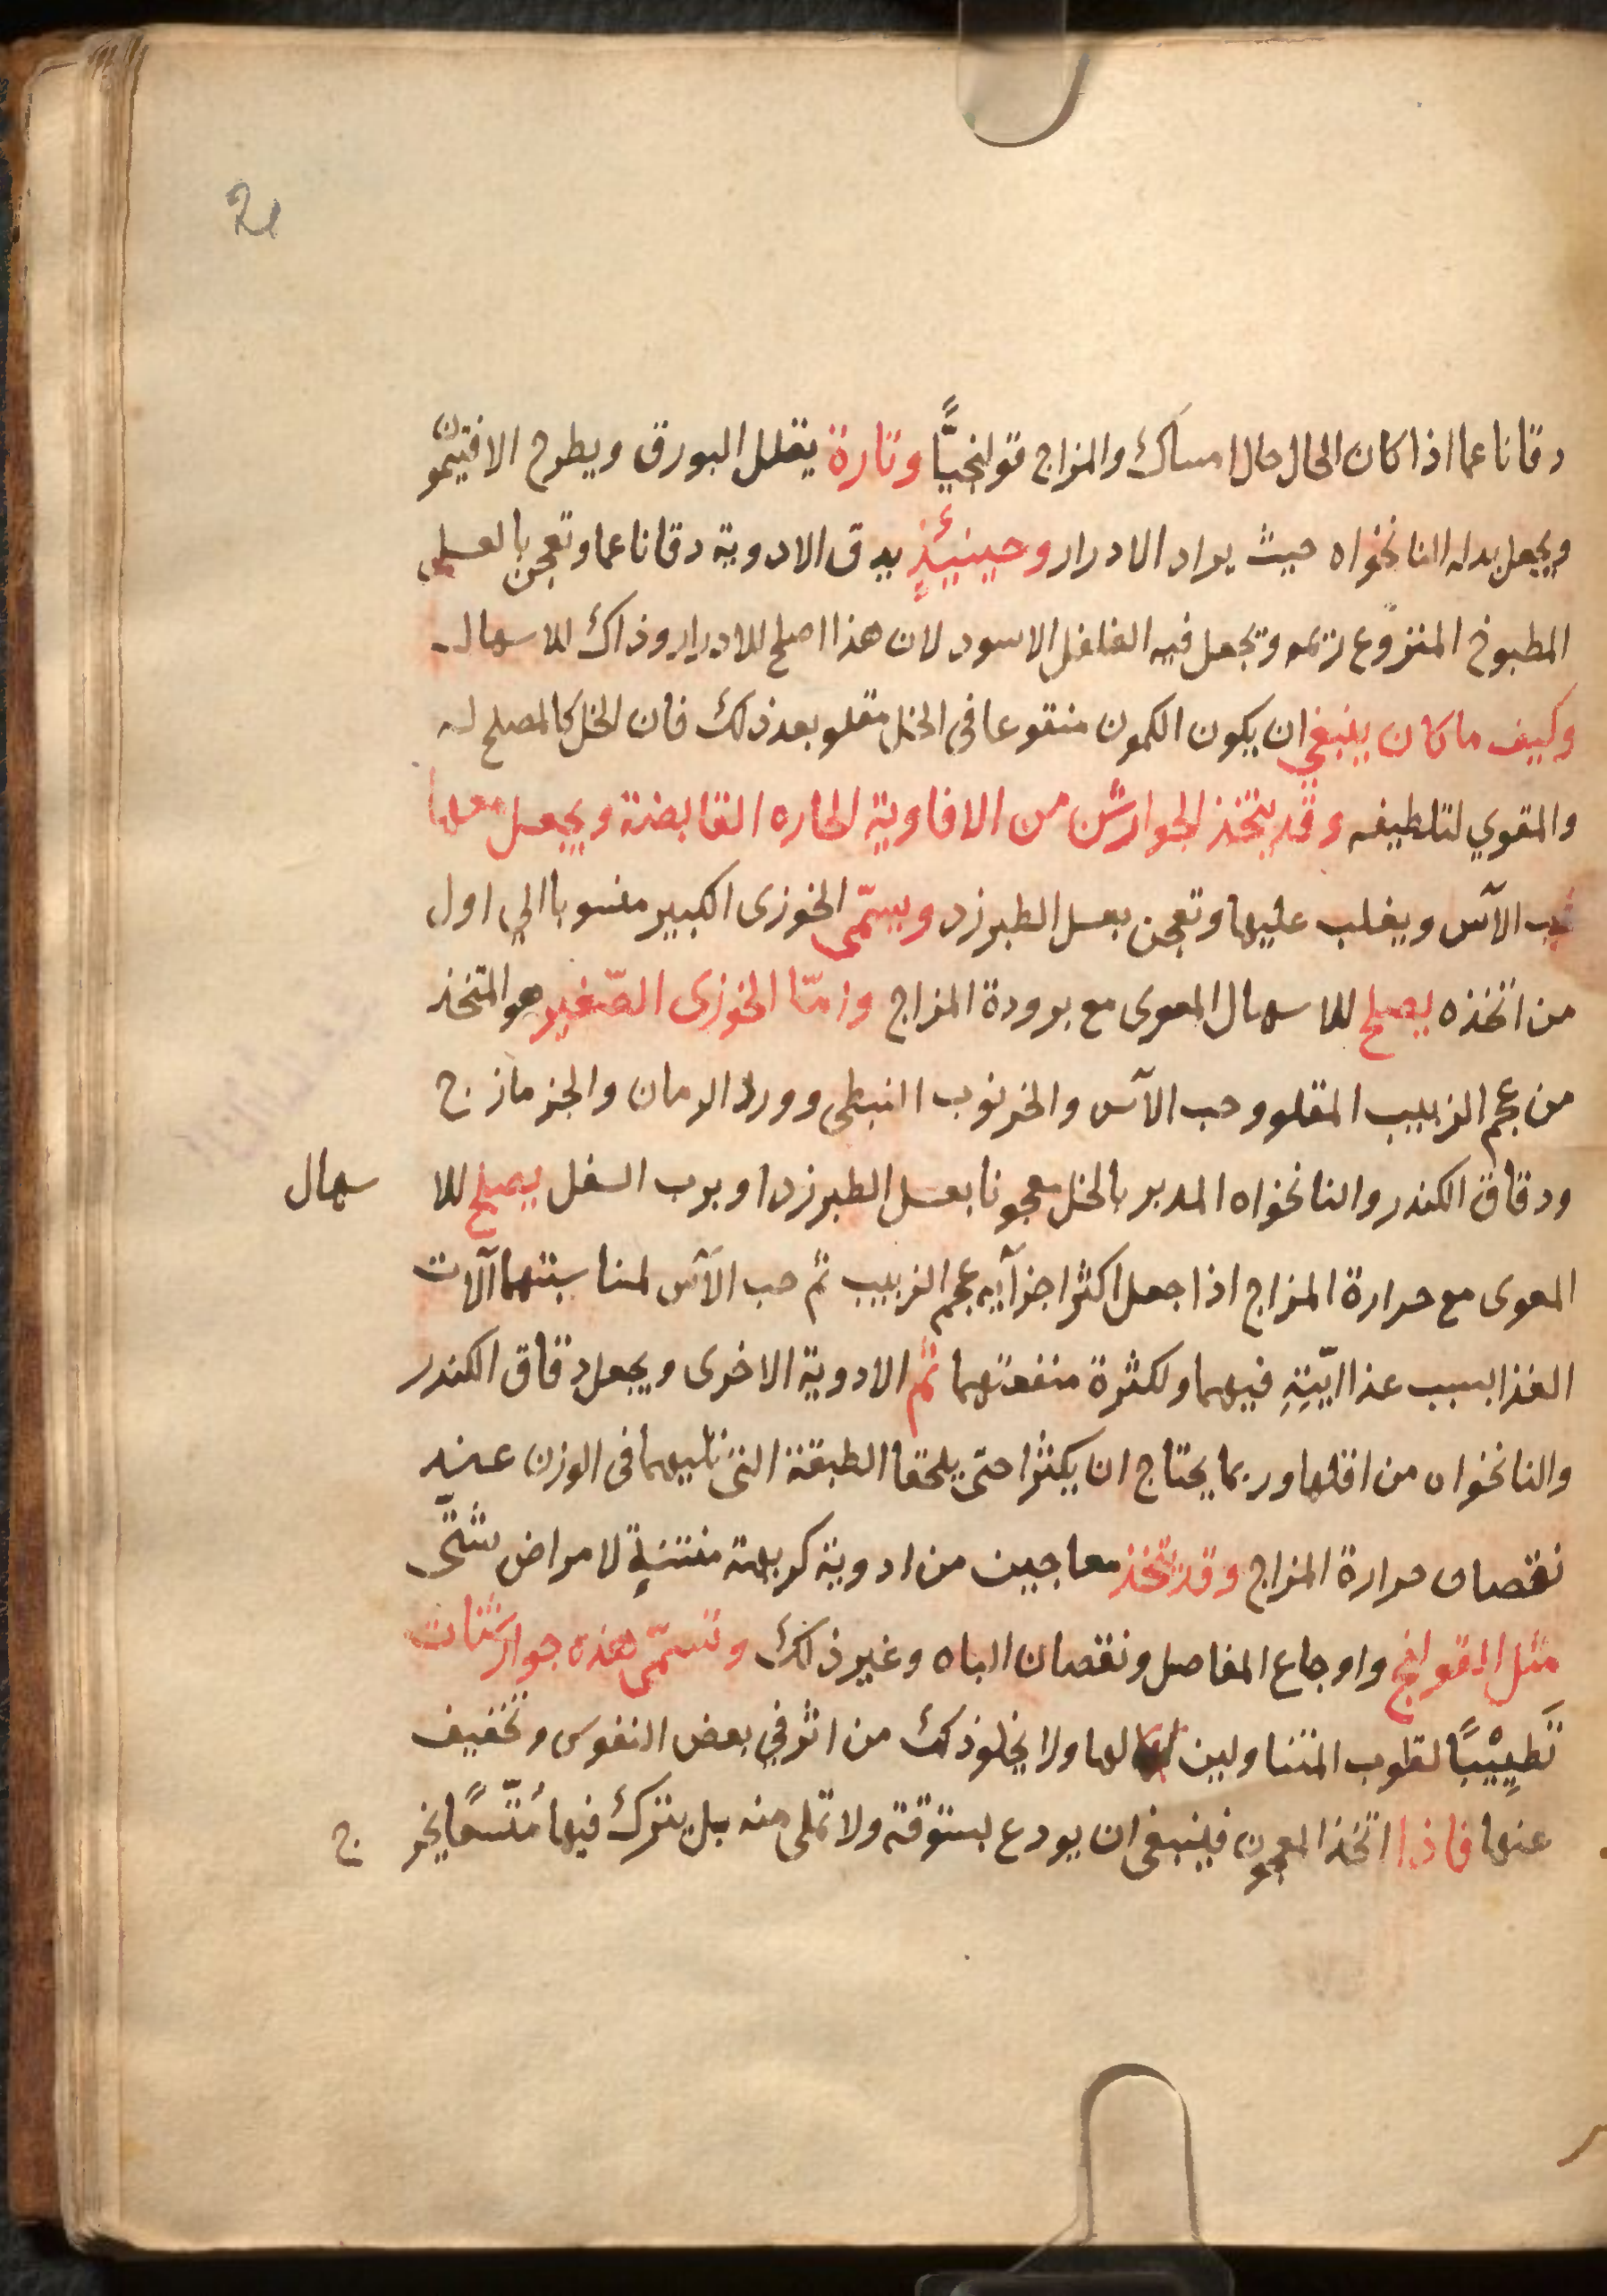 21
دقا ناعما اذا كان الحال حال امساك والمزاج قولنجيًّا وتارة يقلل البورق ويطرح الافتيمون
ويجعل بدله النانخواه حيث يراد الادرار وحينيئذٍ يدق الادوية دقا ناعما وتعجن بالعسل
المطبوخ المنزوع وتجعل فيه الفلفل الاسود لان هذا اصلح للادرار وذاك للاسهال
وكيف ما كان ينبغي ان يكون الكمون منقوعا في الخل مقلو بعد ذلك فان الخل كالمصلح له
والمقوي لتلطيفه وقد يتخذ الجوارش من الافاوية الحاره القابضة ويجعل معها
حب الآس ويغلب عليها وتعجن بعسل الطبرزد ويسمّى الخوزى الكبير منسوبا الي اول
من اتخذه يصلح للاسهال المعوى مع برودة المزاج وامّا الخوزى الصّغير هو المتخذ
من عجم الزبيب المقلو وحب الآس والخرنوب النبطى وورد الرمان والجزمازج
ودقاق الكندر والنانخواه المدبر بالخل معجونا بعسل الطبرزد او برب السفل يصلح للا سهال
المعوى مع حرارة المزاج اذا جعل اكثر اجزآيه عجم الزبيب ثم حب الآس لمناسبتهما آلات
الغذا بسبب غذاايّيةِ فيهما ولكثرة منفعتهما ثم الادوية الاخرى ويجعل دقاق الكندر
والنانخواه من اقلها وربما يحتاج ان يكثرا حتى يلحقا الطبقة التى تليهما فى الوزن عند
نقصان حرارة المزاج وقد تتخذ معاجين من ادوية كريهة منتنةٍ لامراض شتّى
مثل القولنج واوجاع المفاصل ونقصان الباه وغير ذلك وتسمّى هذه جوارشنات
تَطيِيْبًا لقلوب المتناولين لها ولا يخلو ذلك من اثر في بعض النفوس وتخفيف
عنها فاذا اتخذ المعجون فينبغى ان يودع بستوقة ولا تملى منه بل يترك فيها مُتّسعًا يخر ج